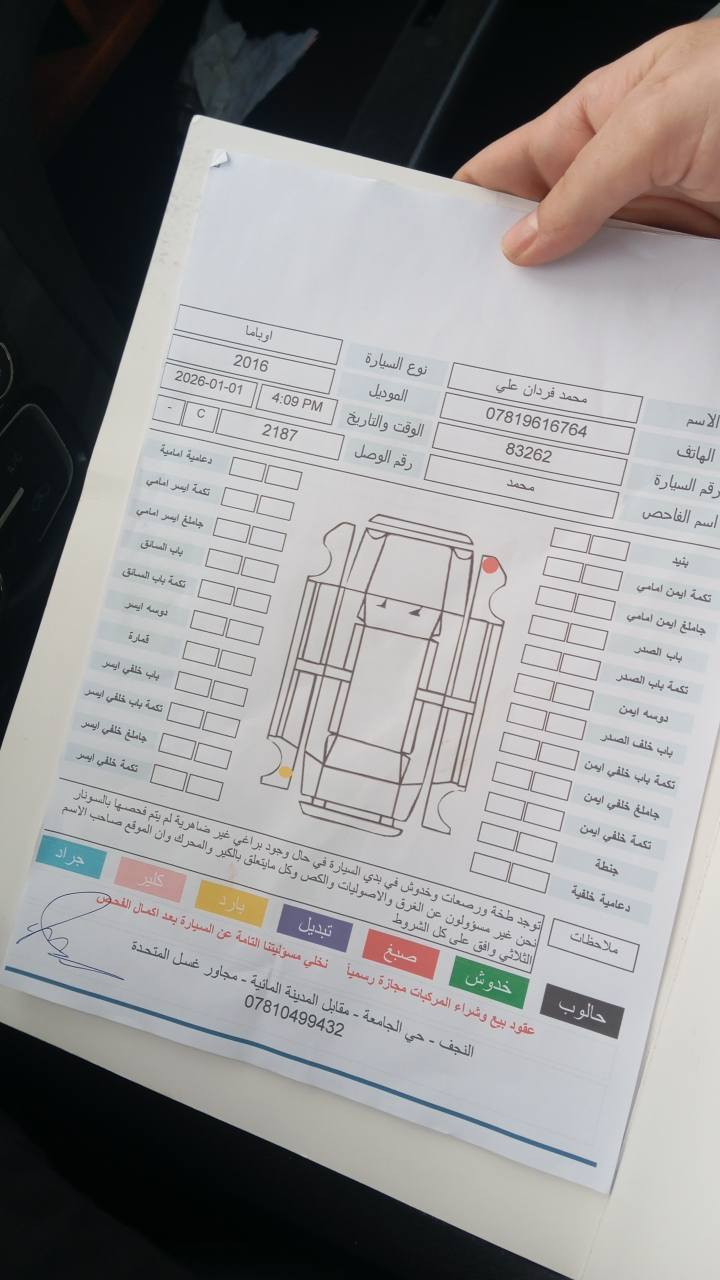 الاسم محمد فردان علي نوع السيارة اوباما
الهاتف 07819616764 الموديل 2016
رقم السيارة 83262 الوقت والتاريخ 4:09 PM 2026-01-01
اسم الفاحص محمد رقم الوصل 2187 C -
بنيد
تكمة ايمن امامي
جاملغ ايمن امامي
باب الصدر
تكمة باب الصدر
دوسه ايمن
باب خلف الصدر
تكمة باب خلفي ايمن
جاملغ خلفي ايمن
تكمة خلفي ايمن
جنطة
دعامية خلفية
دعامية امامية
تكمة ايسر امامي
جاملغ ايسر امامي
باب السائق
تكمة باب السائق
دوسه ايسر
قمارة
باب خلفي ايسر
تكمة باب خلفي ايسر
جاملغ خلفي ايسر
تكمة خلفي ايسر
ملاحظات
توجد طخة ورصعات وخدوش في بدي السيارة في حال وجود براغي غير ضاهرية لم يتم فحصها بالسونار
نحن غير مسؤولون عن الغرق والاصوليات والكص وكل مايتعلق بالكير والمحرك وان الموقع صاحب الاسم
الثلاثي وافق على كل الشروط
حالوب خدوش صبغ تبديل بارد كلير جراد
عقود بيع وشراء المركبات مجازة رسمياً نخلي مسوليتنا التامة عن السيارة بعد اكمال الفحص
النجف - حي الجامعة - مقابل المدينة المائية - مجاور غسل المتحدة
07810499432